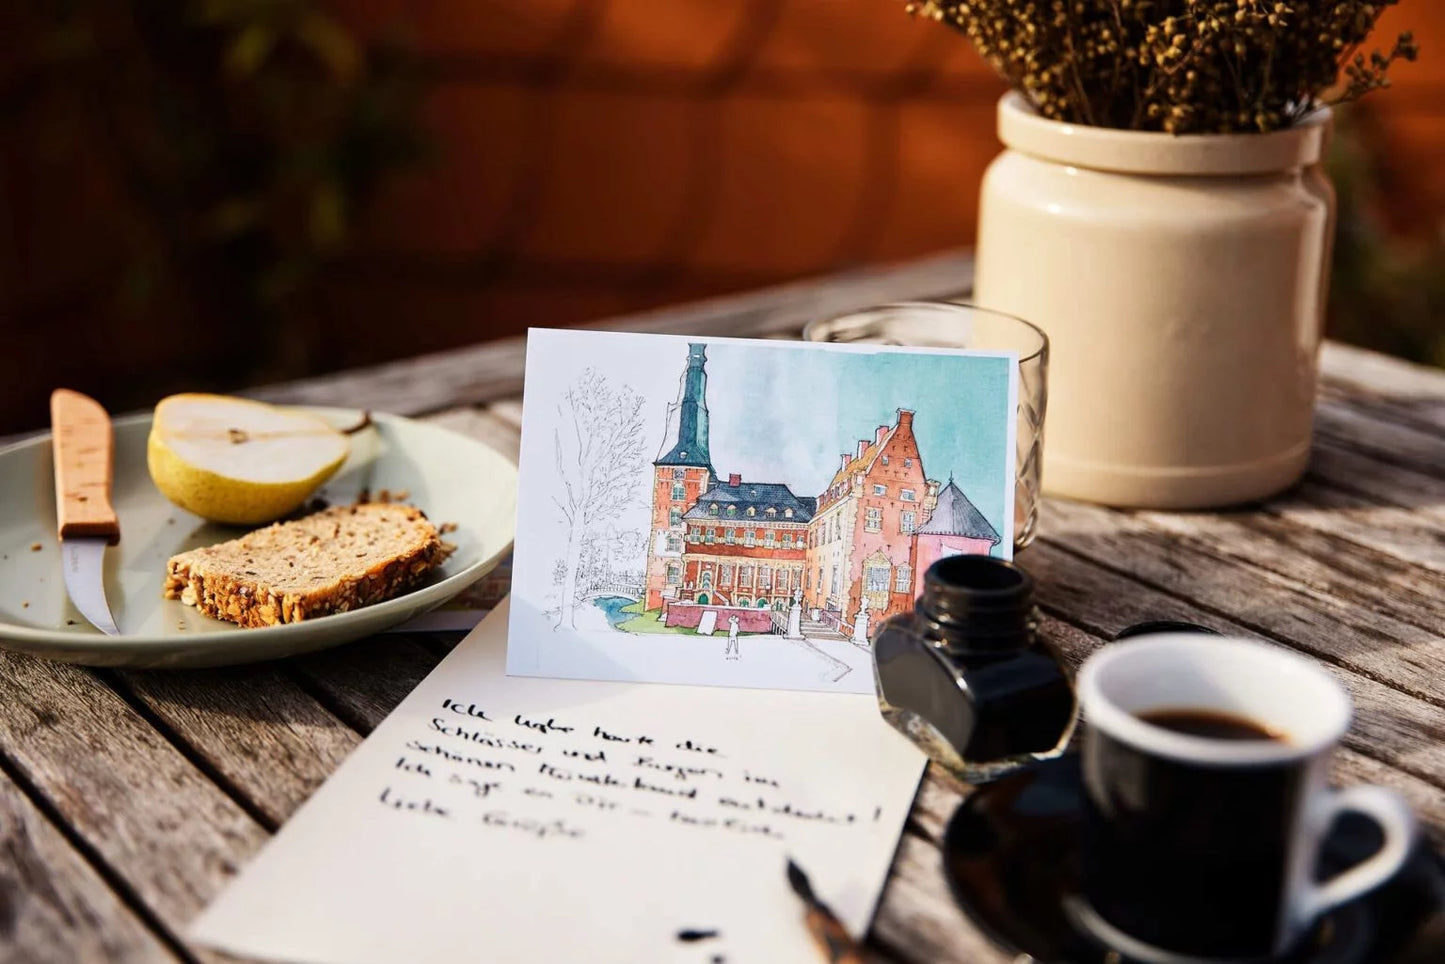 Ich habe heute die
Schlösser und Burgen im
schönen Münsterland entdeckt!
Ich sage es Dir –
Liebe Grüße